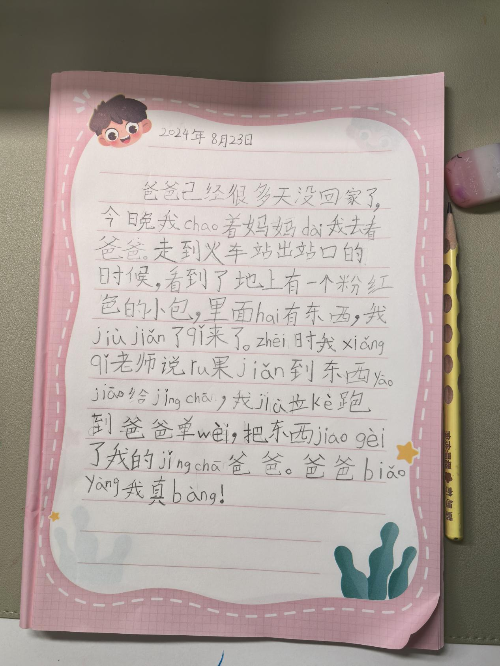 2024年8月23日
爸爸已经很多天没回家了,
今晚我chao着妈妈dai我去看
爸爸。走到火车站出站口的
时候,看到了地上有一个粉红
色的小包,里面hai有东西,我
jiù jiǎn了qǐ来了。zhèi时我xiǎng
qǐ老师说ru果jiǎn到东西yào
jiāo给jǐng chá,我jiù立kè跑
到爸爸单wèi,把东西jiao gèi
了我的jǐng chā爸爸。爸爸biǎo
yáng我真bàng!